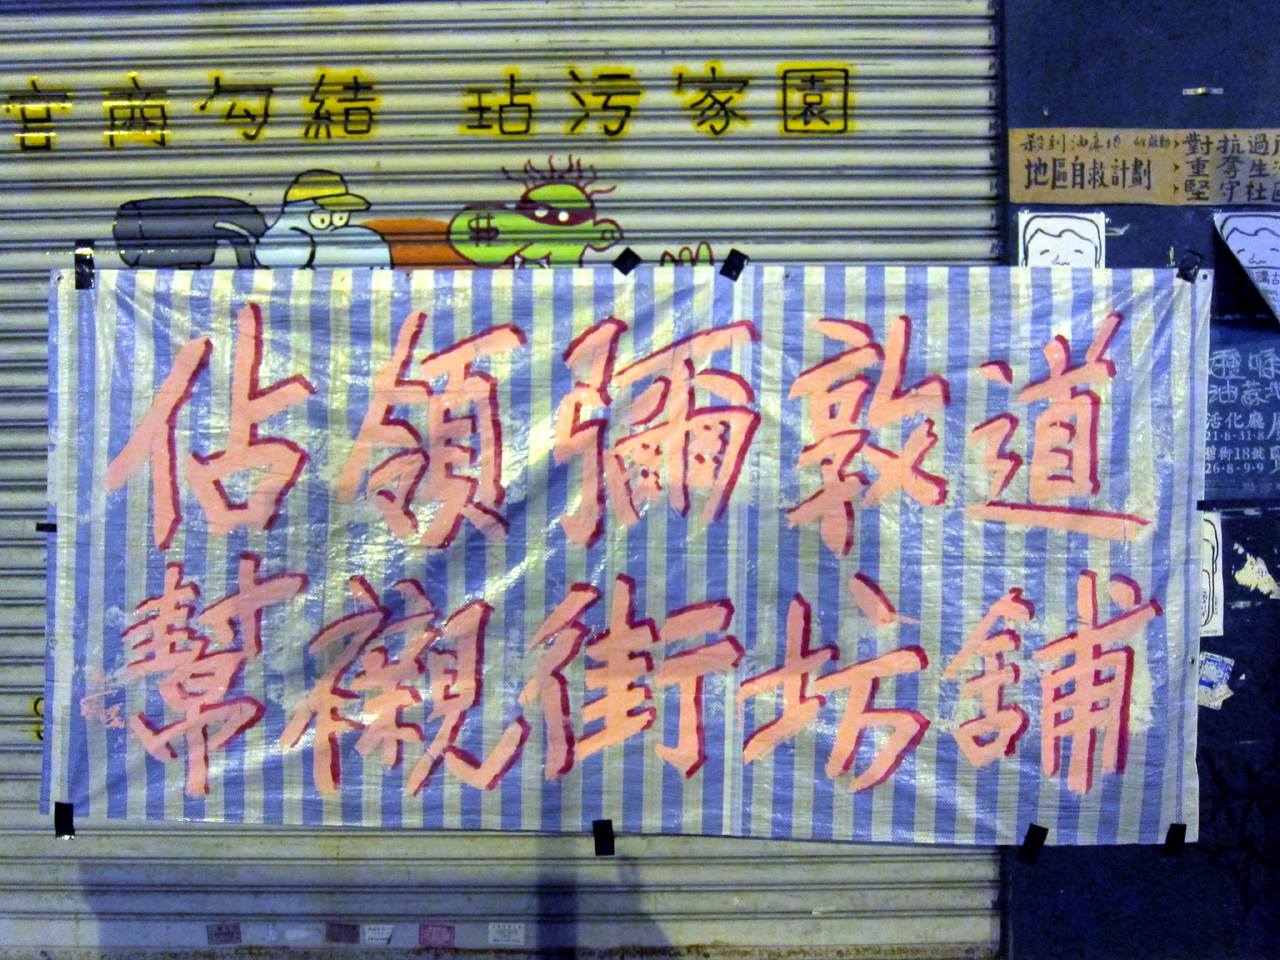 官商勾結 玷污家園
$
殺到油麻地
地區自救計劃
對抗過
重奪生
堅守社區
佔領彌敦道
幫襯街坊舖
活化廳
21·8-31·8
18號
26·8-9·9